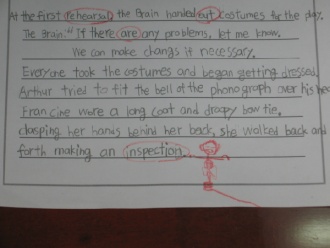 At the first rehearsal, the Brain handed out costumes for the play.
The Brain: "If there are any problems, let me know.
We can make changes if necessary.
Everyone took the costumes and began getting dressed.
Arthur tried to fit the bell of the phonograph over his head
Francine wore a long coat and droopy bow tie,
clasping her hands behind her back, she walked back and
forth making an inspection.